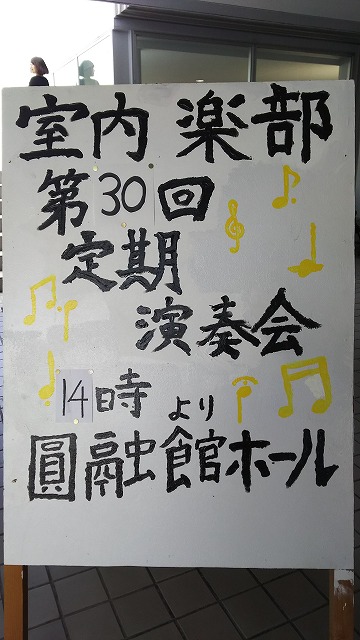 室内楽部
第30回
定期
演奏会
14時より
圓融館ホール